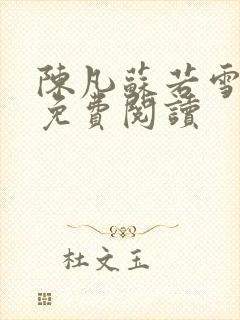 陳凡蘇若雪
免費閱讀
杜文玉